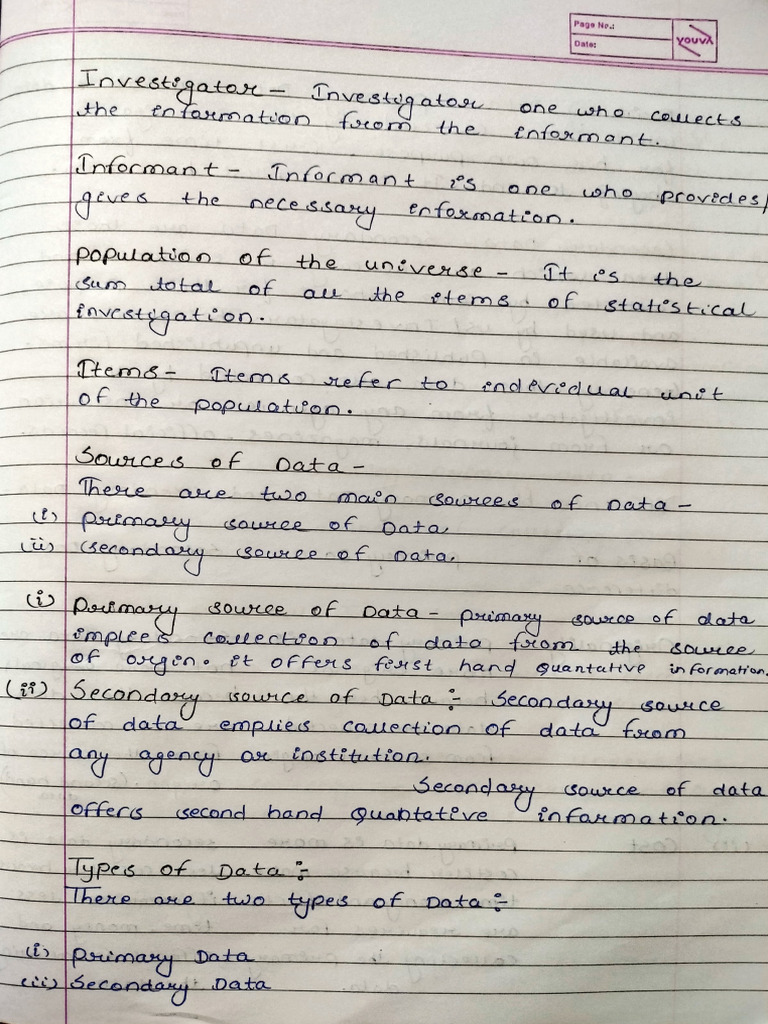 Page No.:
Date:
YOUVA
Investigator - Investigator one who collects
the information from the informant.
Informant - Informant is one who provides/
gives the necessary information.
population of the universe - It is the
sum total of all the items of statistical
investigation.
Items - Items refer to individual unit
of the population.
Sources of Data -
There are two main sources of Data -
(i) primary source of Data
(ii) secondary source of Data.
(i) Primary source of Data - primary source of data
implies collection of data from the source
of orgin. it offers first hand quantative information.
(ii) Secondary source of Data :- Secondary source
of data emplies collection of data from
any agency or institution.
Secondary source of data
offers second hand quantative information.
Types of Data :-
There are two types of Data :-
(i) primary Data
(ii) Secondary Data